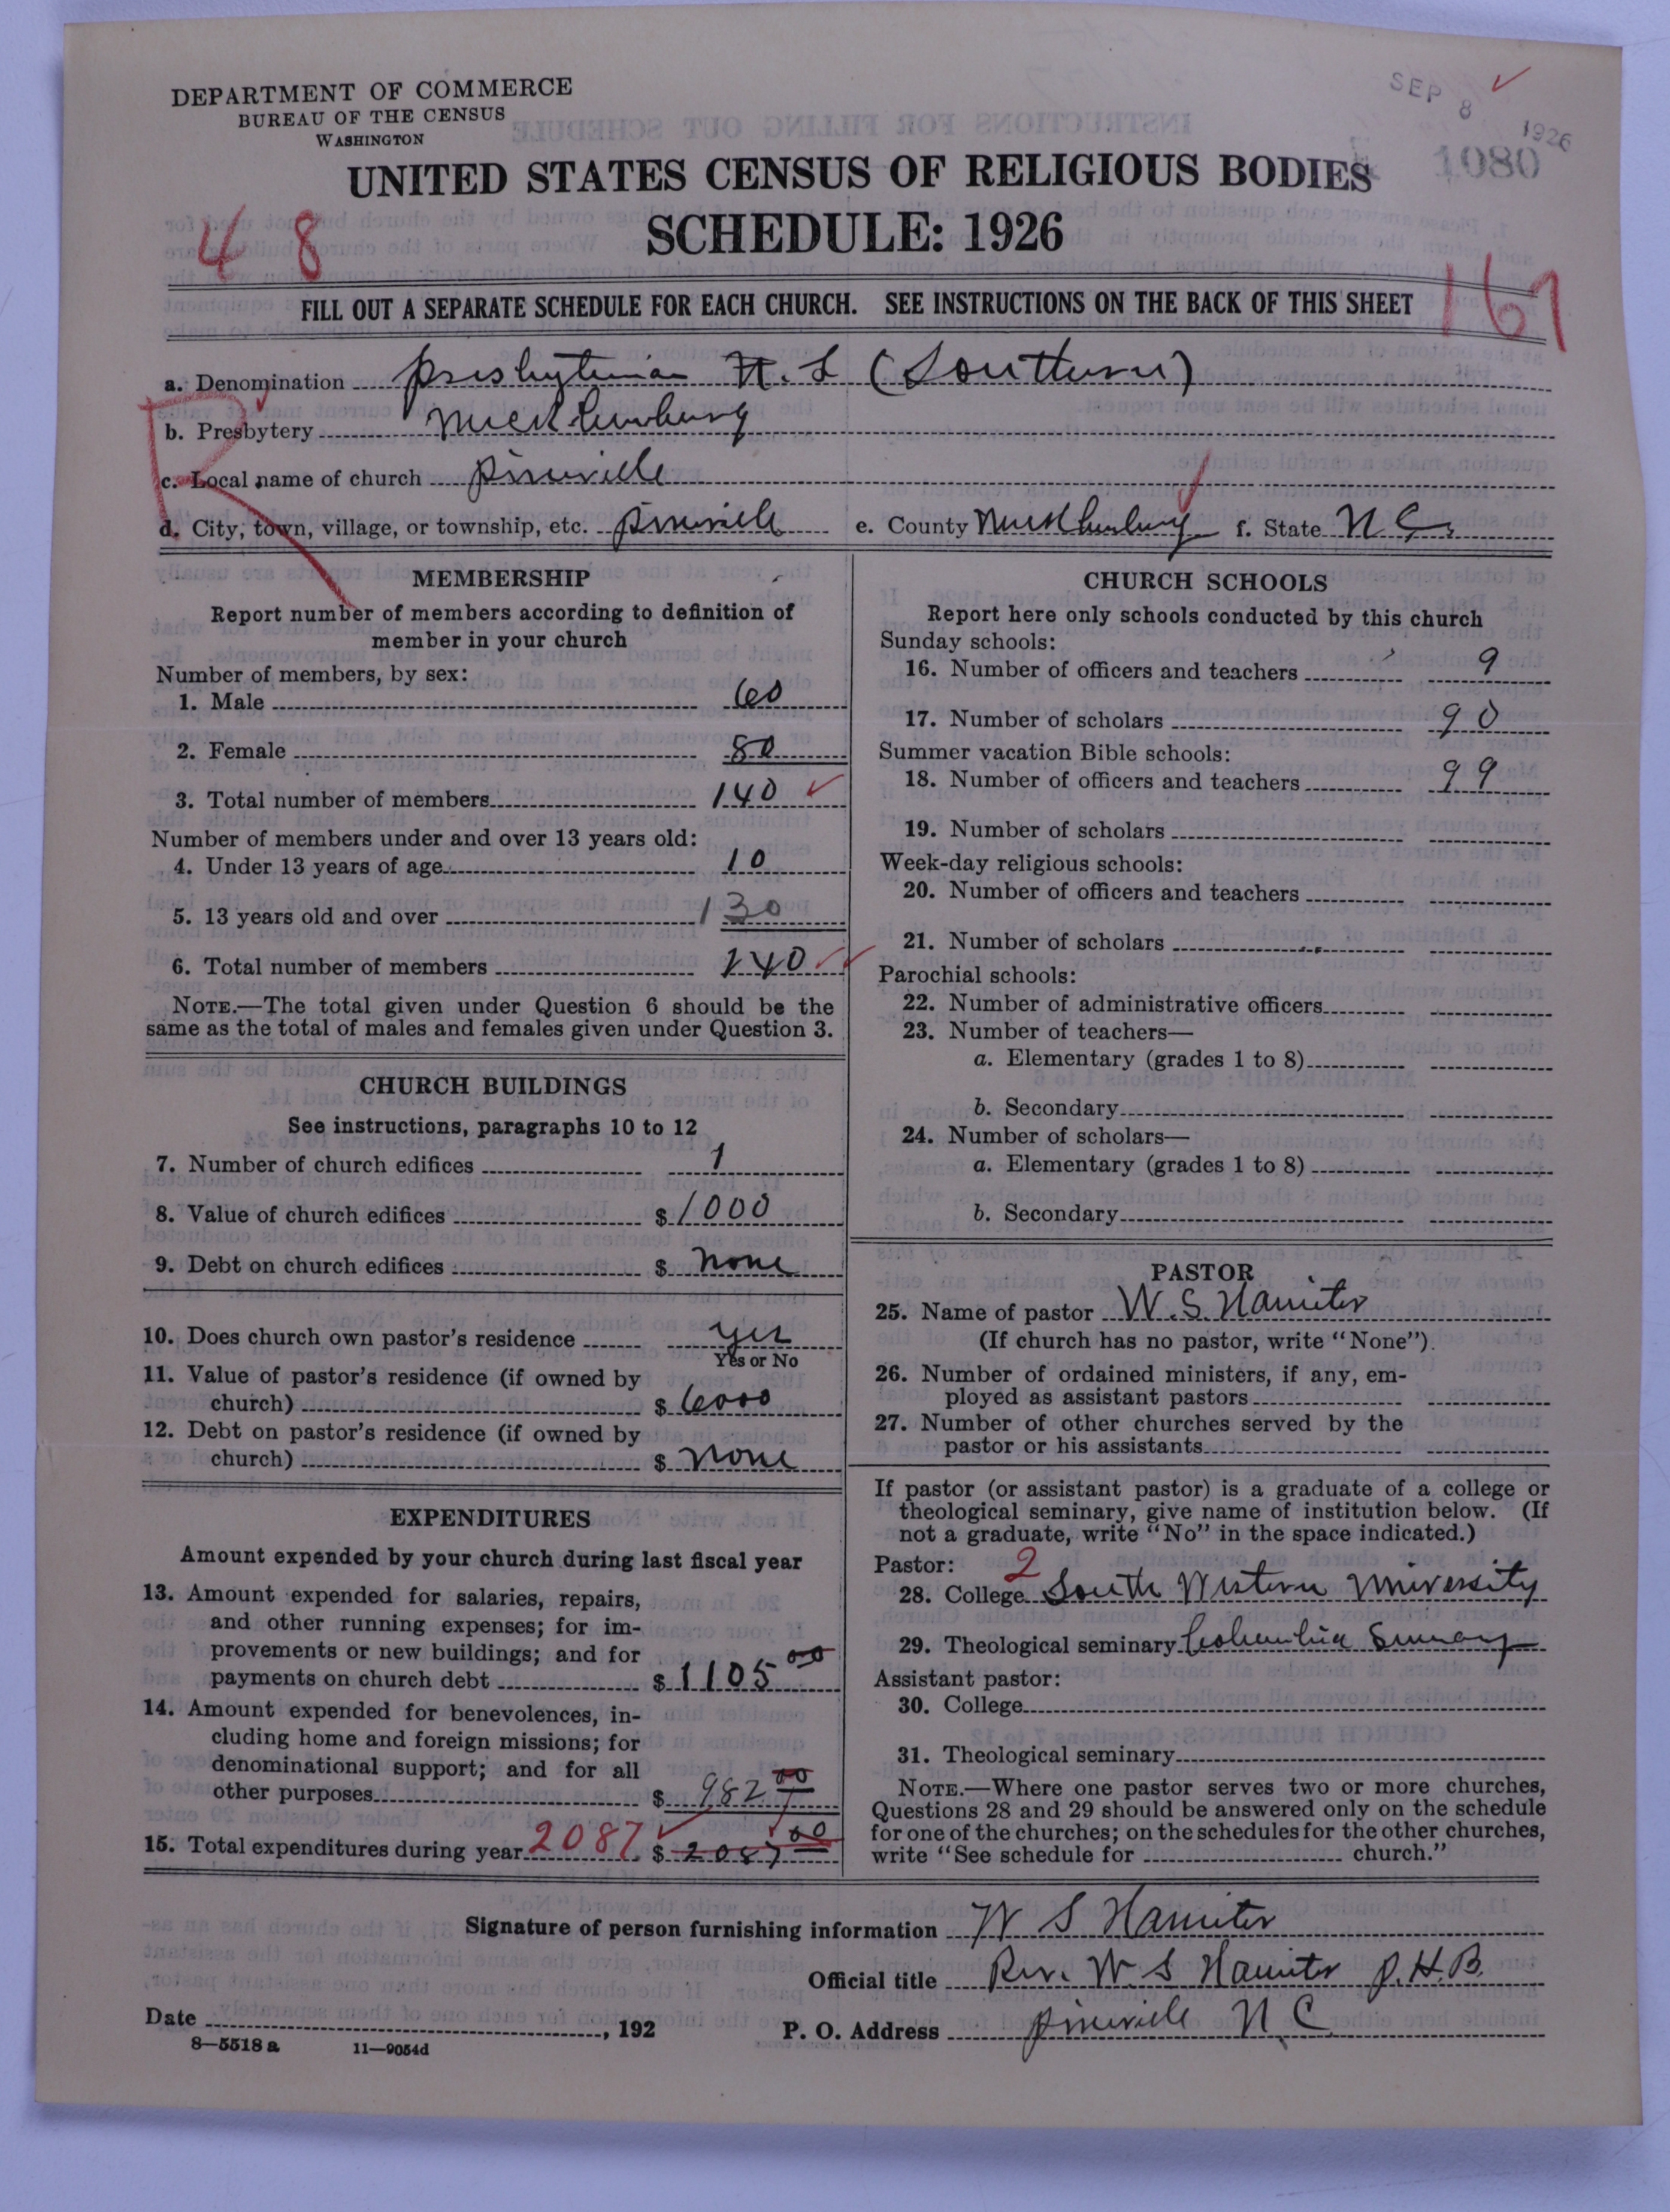 DEPARTMENT OF COMMERCE
BUREAU OF THE CENSUS
WASHINGTON
SEP 8 1926
1080
UNITED STATES CENSUS OF RELIGIOUS BODIES
SCHEDULE: 1926
4 8
FILL OUT A SEPARATE SCHEDULE FOR EACH CHURCH. SEE INSTRUCTIONS ON THE BACK OF THIS SHEET
167
a. Denomination Presbyterian U.S (Southern)
b. Presbytery Mecklenburg
R
c. Local name of church Pineville
d. City, town, village, or township, etc. Pineville e. County Mecklenburg f. State N C.
MEMBERSHIP
Report number of members according to definition of
member in your church
Number of members, by sex:
1. Male 60
2. Female 80
3. Total number of members 140
Number of members under and over 13 years old:
4. Under 13 years of age 10
5. 13 years old and over 130
6. Total number of members 140
NOTE.—The total given under Question 6 should be the
same as the total of males and females given under Question 3.
CHURCH BUILDINGS
See instructions, paragraphs 10 to 12
7. Number of church edifices 1
8. Value of church edifices $ 1000
9. Debt on church edifices $ none
10. Does church own pastor's residence yes
Yes or No
11. Value of pastor's residence (if owned by
church) $ 6000
12. Debt on pastor's residence (if owned by
church) $ none
EXPENDITURES
Amount expended by your church during last fiscal year
13. Amount expended for salaries, repairs,
and other running expenses; for im-
provements or new buildings; and for
payments on church debt $ 1105 00
14. Amount expended for benevolences, in-
cluding home and foreign missions; for
denominational support; and for all
other purposes $ 982 00
15. Total expenditures during year 2087 $ 2087 00
CHURCH SCHOOLS
Report here only schools conducted by this church
Sunday schools:
16. Number of officers and teachers 9
17. Number of scholars 90
Summer vacation Bible schools:
18. Number of officers and teachers 99
19. Number of scholars
Week-day religious schools:
20. Number of officers and teachers
21. Number of scholars
Parochial schools:
22. Number of administrative officers
23. Number of teachers—
a. Elementary (grades 1 to 8)
b. Secondary
24. Number of scholars—
a. Elementary (grades 1 to 8)
b. Secondary
PASTOR
25. Name of pastor W. S. Hamiter
(If church has no pastor, write "None").
26. Number of ordained ministers, if any, em-
ployed as assistant pastors
27. Number of other churches served by the
pastor or his assistants
If pastor (or assistant pastor) is a graduate of a college or
theological seminary, give name of institution below. (If
not a graduate, write "No" in the space indicated.)
Pastor: 2
28. College South Western University
29. Theological seminary Columbia
Assistant pastor:
30. College
31. Theological seminary
NOTE.—Where one pastor serves two or more churches,
Questions 28 and 29 should be answered only on the schedule
for one of the churches; on the schedules for the other churches,
write "See schedule for church."
Signature of person furnishing information W S Hamiter
Official title Rev. W. S Hamiter P.H.B.
Date , 192
P. O. Address Pineville N.C.
8—5518 a 11—9054d